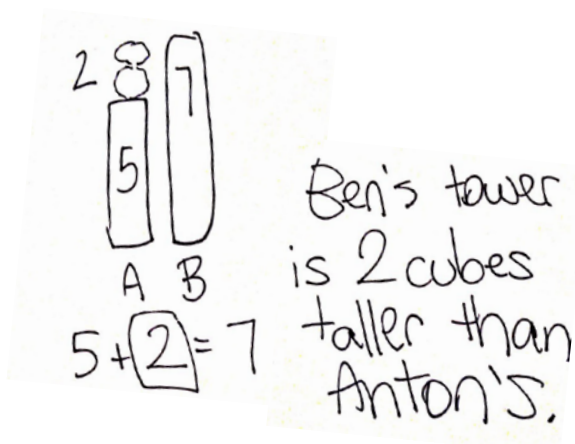 2
7
5
A B
5+2=7
Ben's tower
is 2 cubes
taller than
Anton's.